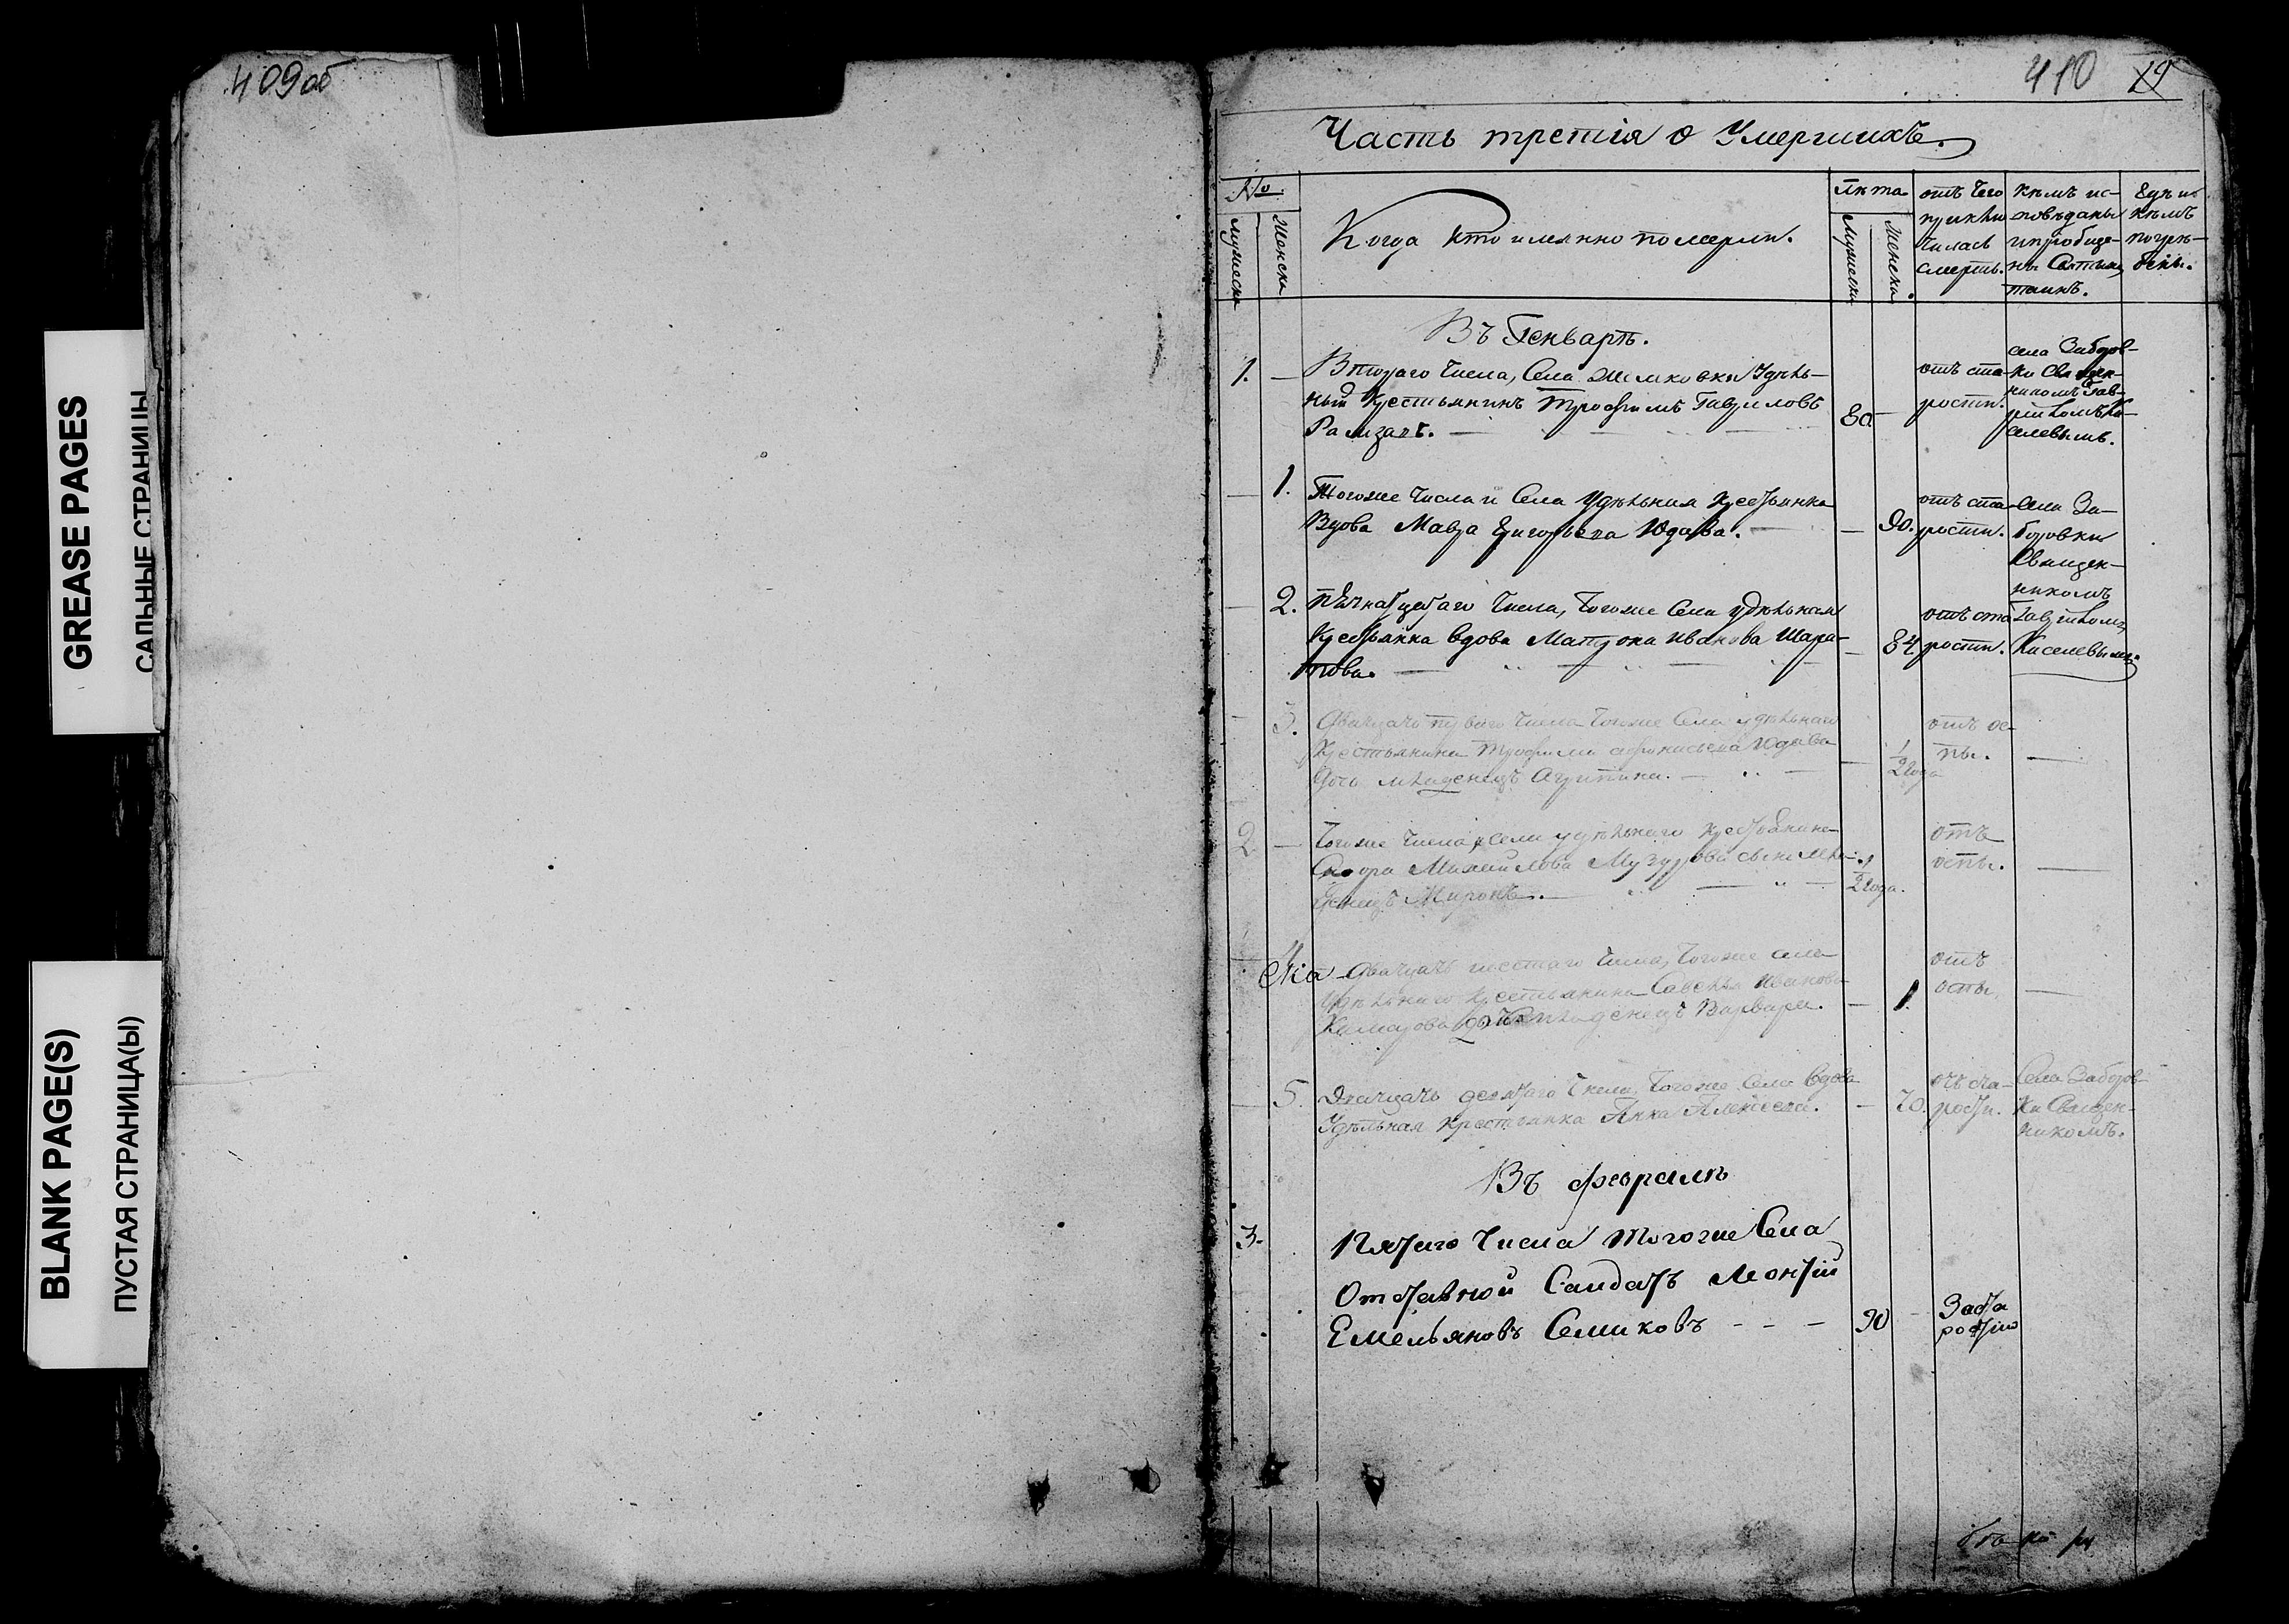 409об
GREASE PAGES
САЛЬНЫЕ СТРАНИЦЫ
BLANK PAGE(S)
ПУСТАЯ СТРАНИЦА(Ы)
410 19
Часть третія о Умершихъ.
№
мужеска
женска
Когда кто имянно померли.
лѣта
мужеска
женска
отъ чего
приклю
чилась
смерть.
кѣмъ ис-
повѣданы
и приобще-
ны Святыхъ
таинъ.
Гдѣ и
кѣмъ
погре-
бены.
Въ Генварѣ.
1. — Втораго числа, Села Удѣль-
ный крестьянинъ Трофимъ Гавриловъ
80
отъ ста-
рости.
села Заборов-
ки Священ-
никомъ Гав-
рииломъ Ки-
селевымъ.
— 1. Тогоже числа и Села Удѣльная крестьянка
Вдова Мавра Григорьева Юдова. — 90.
отъ ста
рости.
села За-
боровки
Священ-
никомъ
Гавріиломъ
Киселевымъ.
— 2. пятнатцатаго числа, тогоже Села удѣльная
Крестьянка вдова Матрона Иванова Шара-
това. — 84
отъ ста
рости.
— 3. Двадцать перваго числа тогоже Села удѣльнаго
Крестьянина Трофима Афонасьева Юдова
дочь младенецъ Агрипина. — 1/2 года
отъ ос
пы. —
2 — тогоже числа и села удѣльнаго крестьянина
Михайлова сынъ мла-
денецъ Миронъ. — 1/2 года.
отъ
оспы. —
— 4. Двадцать шестаго числа, тогоже села
Удѣльнаго крестьянина Савелья Иванова
Камарова дочь младенецъ Варвара. — 1.
отъ
оспы. —
— 5. Двадцать девятаго числа тогоже Села вдова
Удѣльная крестьянка Анна Алексеева. — 70.
отъ ста-
рости.
Села Заборов-
ки Священ-
никомъ.
Въ февралѣ
3. Пятаго числа тогоже Села
Отставной Салдатъ Леонтій
Емельяновъ Семиковъ - - - 90
Заста
ростію